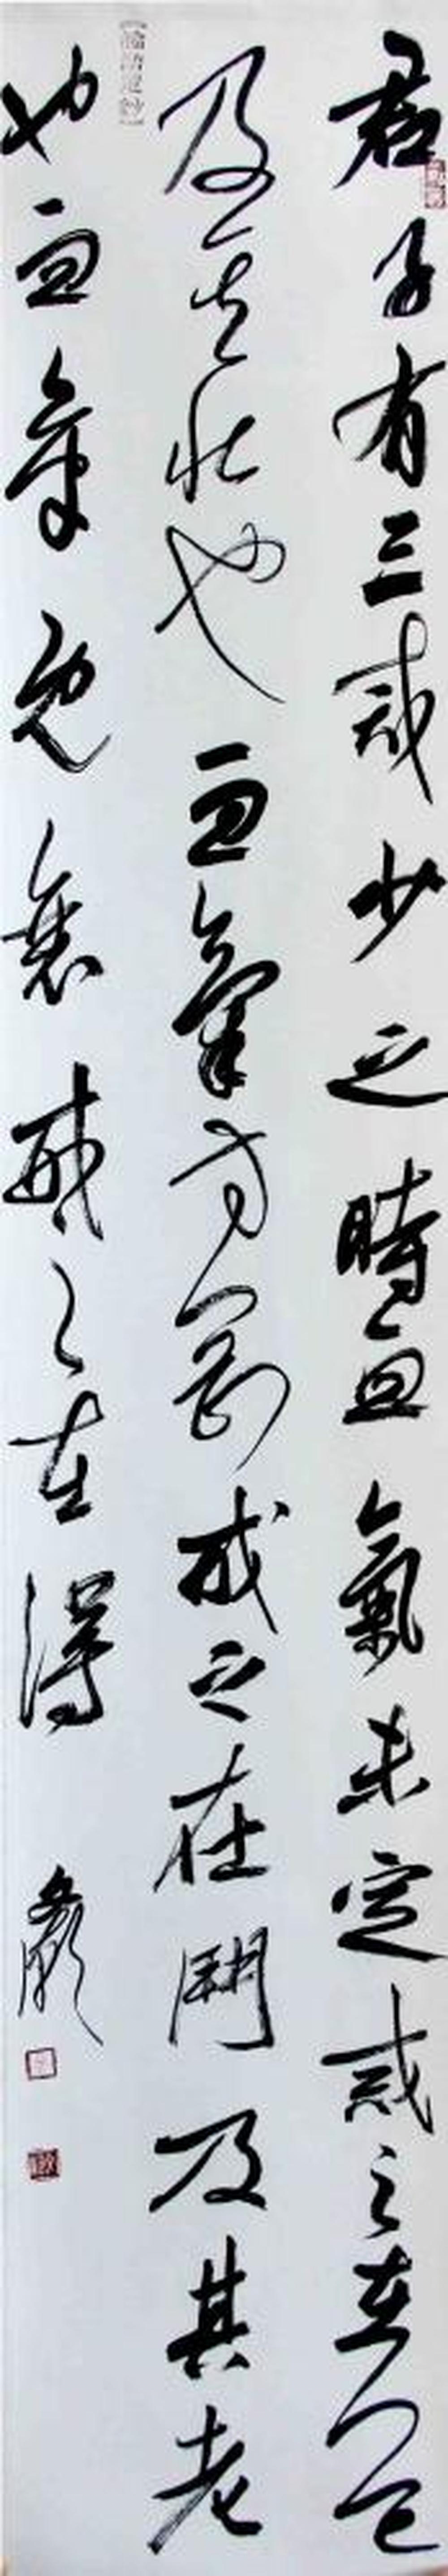 君子有三戒少之時血氣未定戒之在色
及其壯也血氣方剛戒之在鬥及其老
也血氣既衰戒之在得